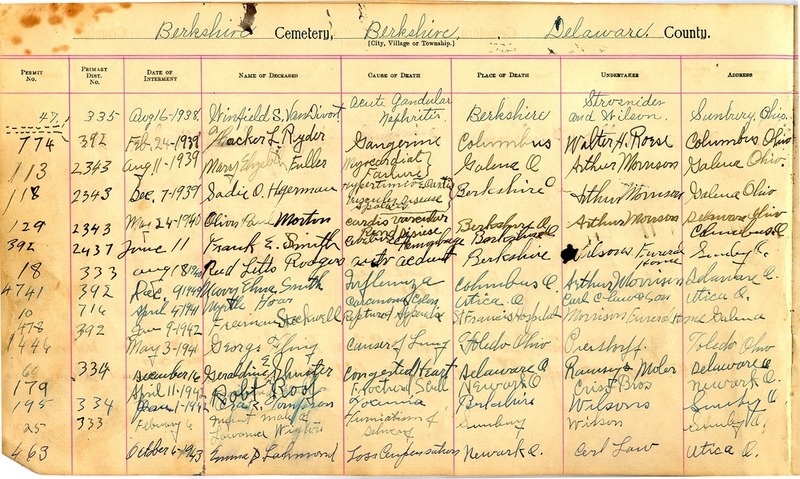 Berkshire Cemetery, Berkshire, Delaware County.
[City, Village or Township.]
PERMIT NO. PRIMARY DIST. NO. DATE OF INTERMENT NAME OF DECEASED CAUSE OF DEATH PLACE OF DEATH UNDERTAKER ADDRESS
47. 335 Aug 16-1938 Winfield S. VanDivort Acute Gandular Nephritis Berkshire Strosnider and Wilson. Sunbury, Ohio.
774 392 Feb. 24-1939 Thacker L. Ryder Gangerine Columbus Walter H. Roese Columbus Ohio
113 2343 Aug 11-1939 Mary Elizabeth Fuller Myocardial Failure Galena O Arthur Morrison Galena Ohio.
118 2343 Dec, 7-1939 Sadie O. Hegerman Disease Berkshire Arthur Morrison Galena Ohio
129 2343 May 24-1940 Morton cardio vascular Disiese Berkshire O. Arthur Morrison Delaware Ohio
392 2437 June 11 Frank E. Smith Hemorhage Berkshire Wilsons Funeral Home Sunbury O.
18 333 Aug 18 1940 Rodgers auto accident
4741 392 Dec. 9 1940 Smith Influenza Columbus O. Arthur Morrison Delaware O.
10 716 April 4 1941 Myrtle Hoar Carcanoma Colon Utica. O Carl C Law & Son Utica O.
1478 392 Jan 9-1942 Freeman Stockwell St Francis Hospital Morrison Funeral Home Galena
1446 May 3-1941 George Effing cancer of Lung Toledo Ohio Toledo Ohio
66 334 December 16 Geraldine Congested Heart Delaware O Ramsey Moler Delaware O
179 April 11-1942 Robt Roof Skull Newark O. Crist Bros Newark O.
195 334 1-1942 Thompson Berkshire Wilsons Sunbury O
25 333 Febuary 6 Infant of Sunbury Wilson Sunbury O.
463 October 6-1943 Emma D Loss Compensation Newark O. Carl Law Utica O.